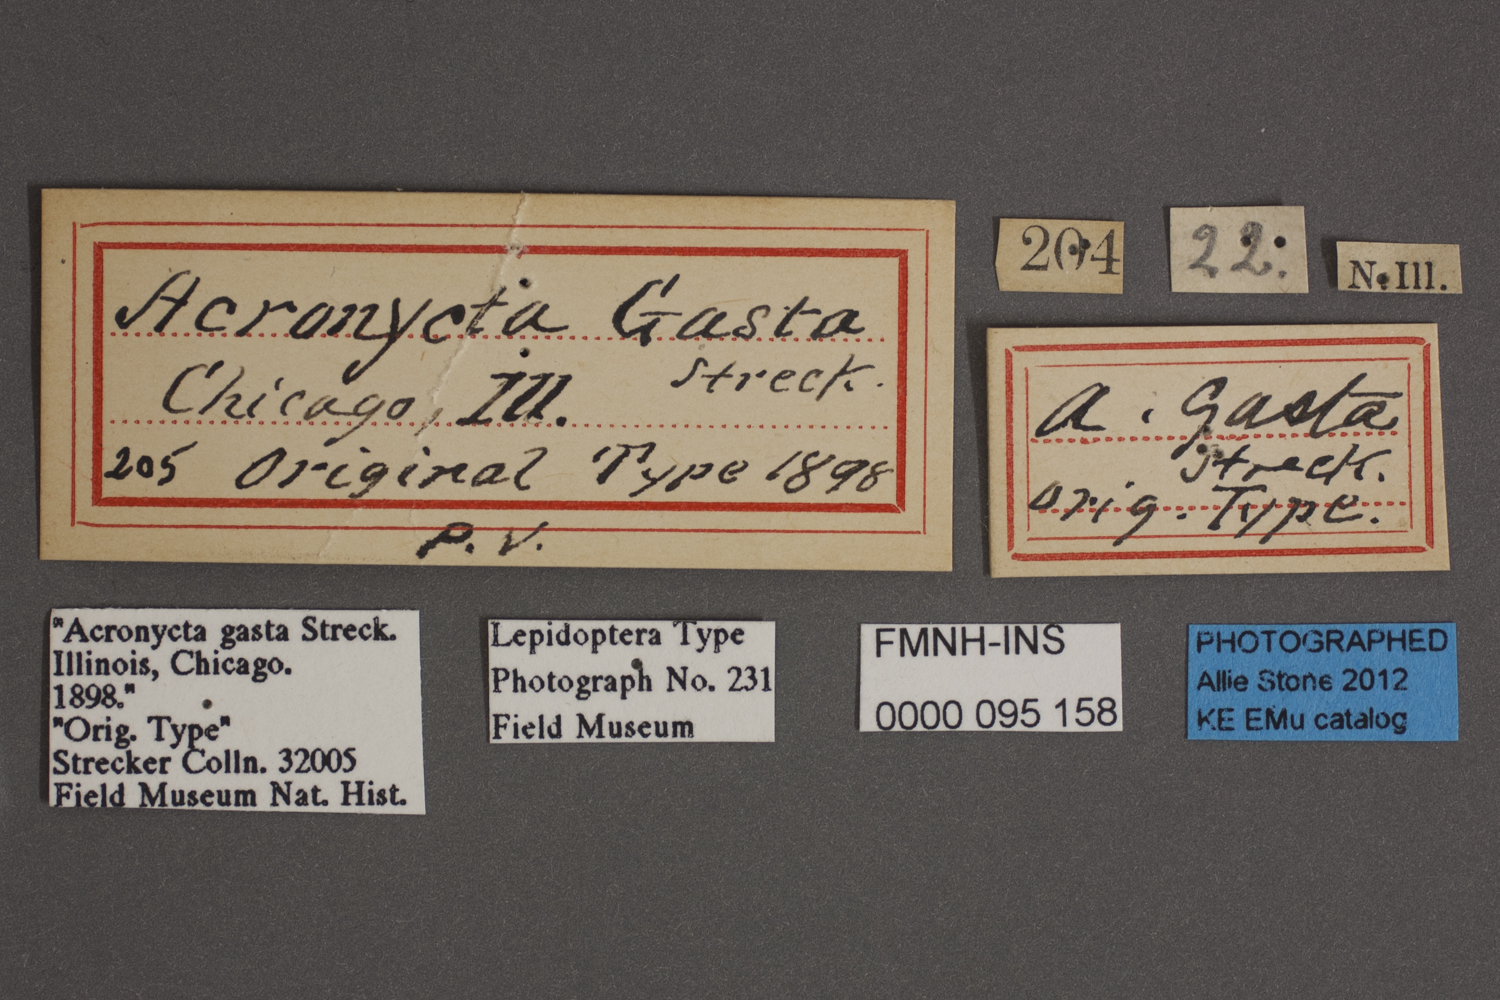 Acronycta Gasta
Streck.
Chicago, Ill.
205 Original Type 1898
P. V.
204
22.
N. Ill.
A. Gasta
Streck.
Orig. Type.
"Acronycta gasta Streck.
Illinois, Chicago.
1898."
"Orig. Type"
Strecker Colln. 32005
Field Museum Nat. Hist.
Lepidoptera Type
Photograph No. 231
Field Museum
FMNH-INS
0000 095 158
PHOTOGRAPHED
Allie Stone 2012
KE EMu catalog